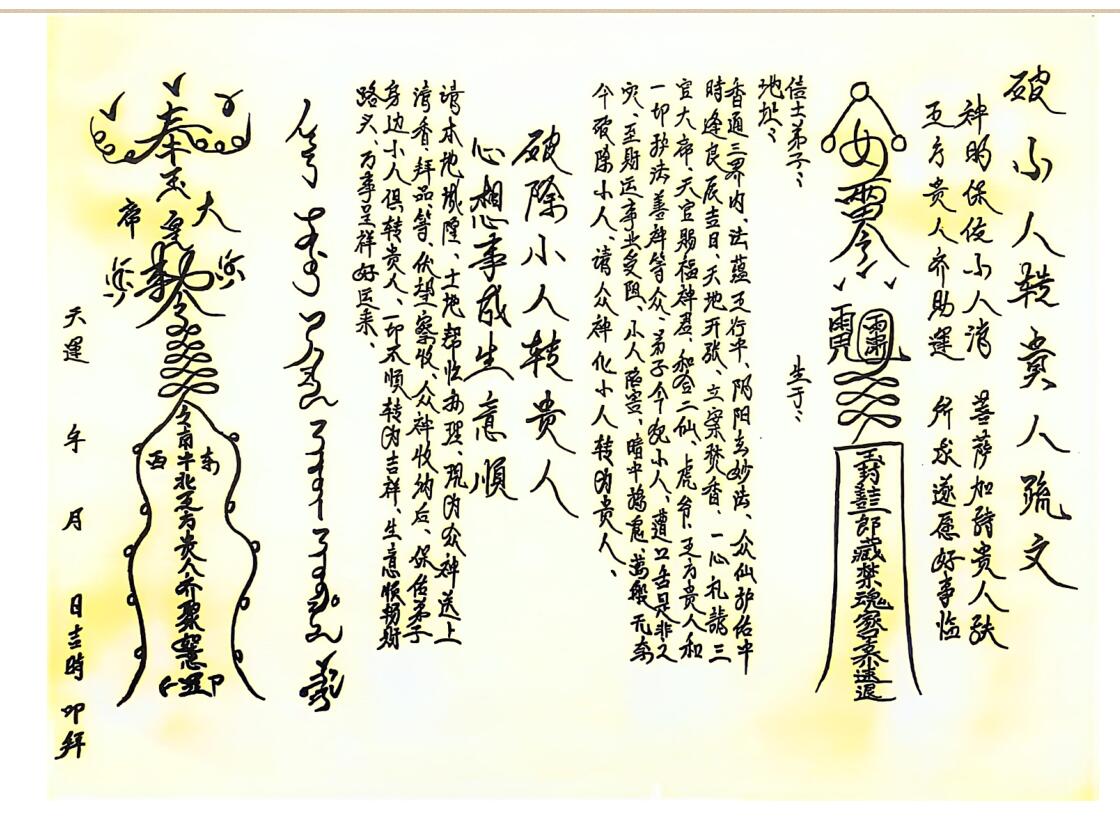 破小人转贵人疏文
神明保佑小人消 菩萨加持贵人扶
五方贵人齐助運 所求遂愿好事临
女
雷令
玉封
郎藏禁魂
速退
信士弟子：
生于：
地址：
香通三界内、法蕴五行中、阴阳玄妙法、众仙护佑中
時逢良辰吉日、天地开张、立案焚香、一心礼請三
官大帝、天官赐福神君、和合二仙、虎爷、五方贵人和
一切护法善神等众、弟子今犯小人、遭口舌是非之
灾、至财运事业受阻、小人陷害、暗中為鬼、萬般无奈
今破除小人、请众神化小人转为贵人、
破除小人转贵人
心想事成生意順
请本地城隍、土地帮忙办理、现为众神送上
清香拜品等、伏望察收、众神收纳后、保佑弟子
身边小人俱转贵人、一切不顺转为吉祥、生意顺扬财
路头、万事呈祥好运来、
奉玉皇大帝
勅令
东西南中北五方贵人齐聚
天運 年 月 日吉時 叩拜